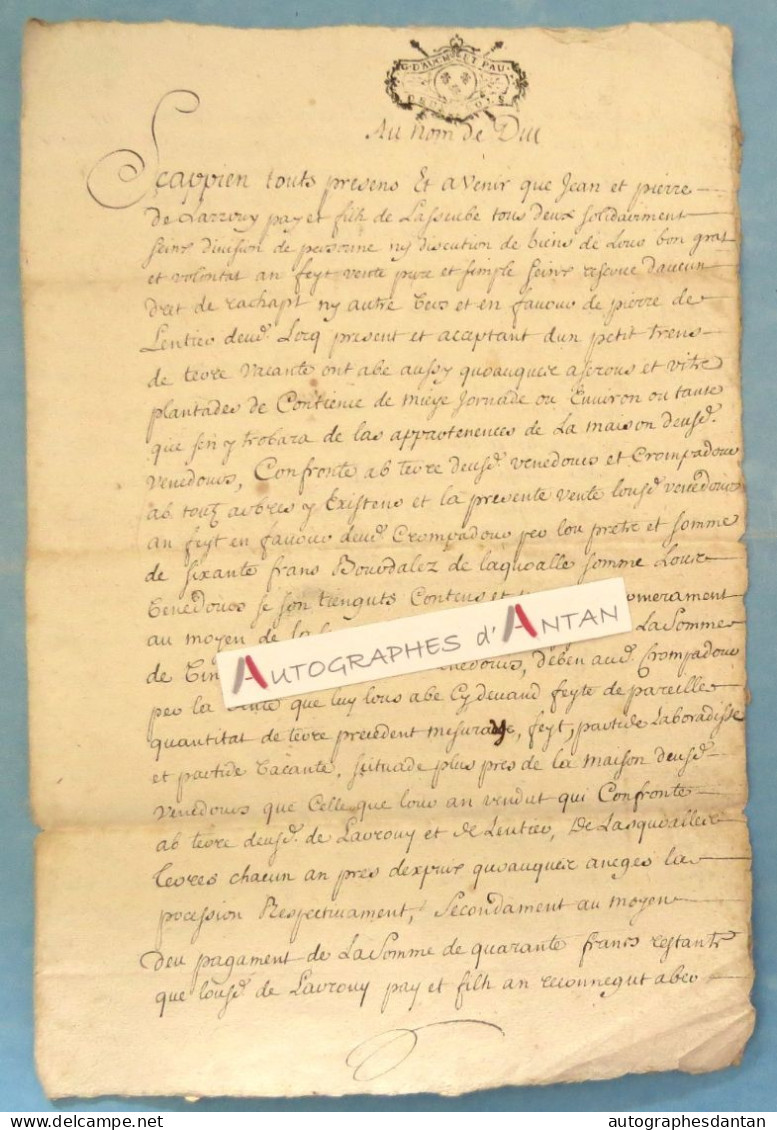 G. D'AUCH ET PAU
Au nom de Diu
Scappien touts presens Et avenir que Jean et pierre
de Larrouy pay et filh de Lasseube tous deux solidariment
seins division de persoune ny discution de biens de Lous bon grat
et volontat an feyt vente pure et simple seins reserve daucun
dret de rachapt ny autre et en favour de pierre de
Lentier deud. Locq present et acceptant dun petit trens
de terre vacante ont abe aussy quoauquer aserous et vitre
plantades de Contienie de mieye Jornade ou Environ ou tante
que sen y trobara de las appartenences de La maison deusd.
venedours, Confronte ab terre deusd. venedours et Crompadou
ab toutz arbres y Existens et la presente vente lousd. venedours
an feyt en favour deud. Crompadou per lou pretz et somme
de sixante frans Bourdalez de laquoalle somme Lous
venedours se son tienguts Contens et merament
au moyen de La Somme
de nedours, deben aud. Crompadou
per la que luy lous abe Cy devand feyte de pareille
quantitat de terre precedent mesurage, feyt, partide Laboradisse
et partide vacante, scituade plus pres de la maison deusd.
venedours que Celle que lous an vendut qui Confronte
ab terre deusd. de Larrouy et de Lentier, De Lasquoalles
terres chacun an pres dexprir quoauquer aneges la
pocession Respectivament, Secondament au moyen
deu pagament de La Somme de quarante francs restants
que lousd. de Larrouy pay et filh an reconnegut aber
AUTOGRAPHES d'ANTAN
delcampe.net
autographesdantan